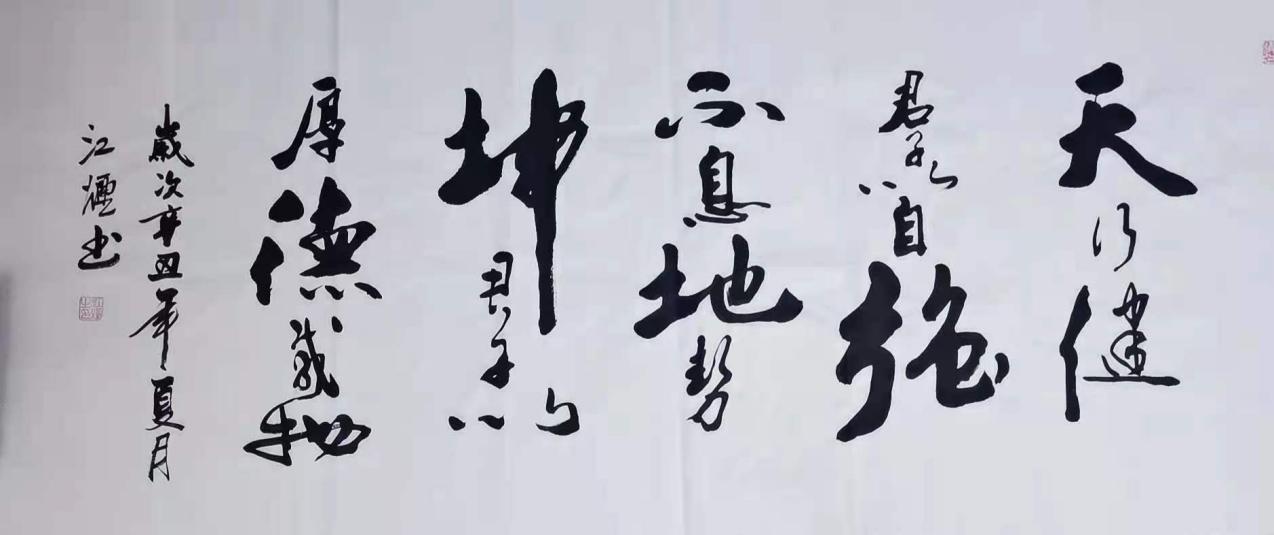 天行健
君子以自强
不息地势
坤君子以
厚德载物
岁次辛丑年夏月
江
书